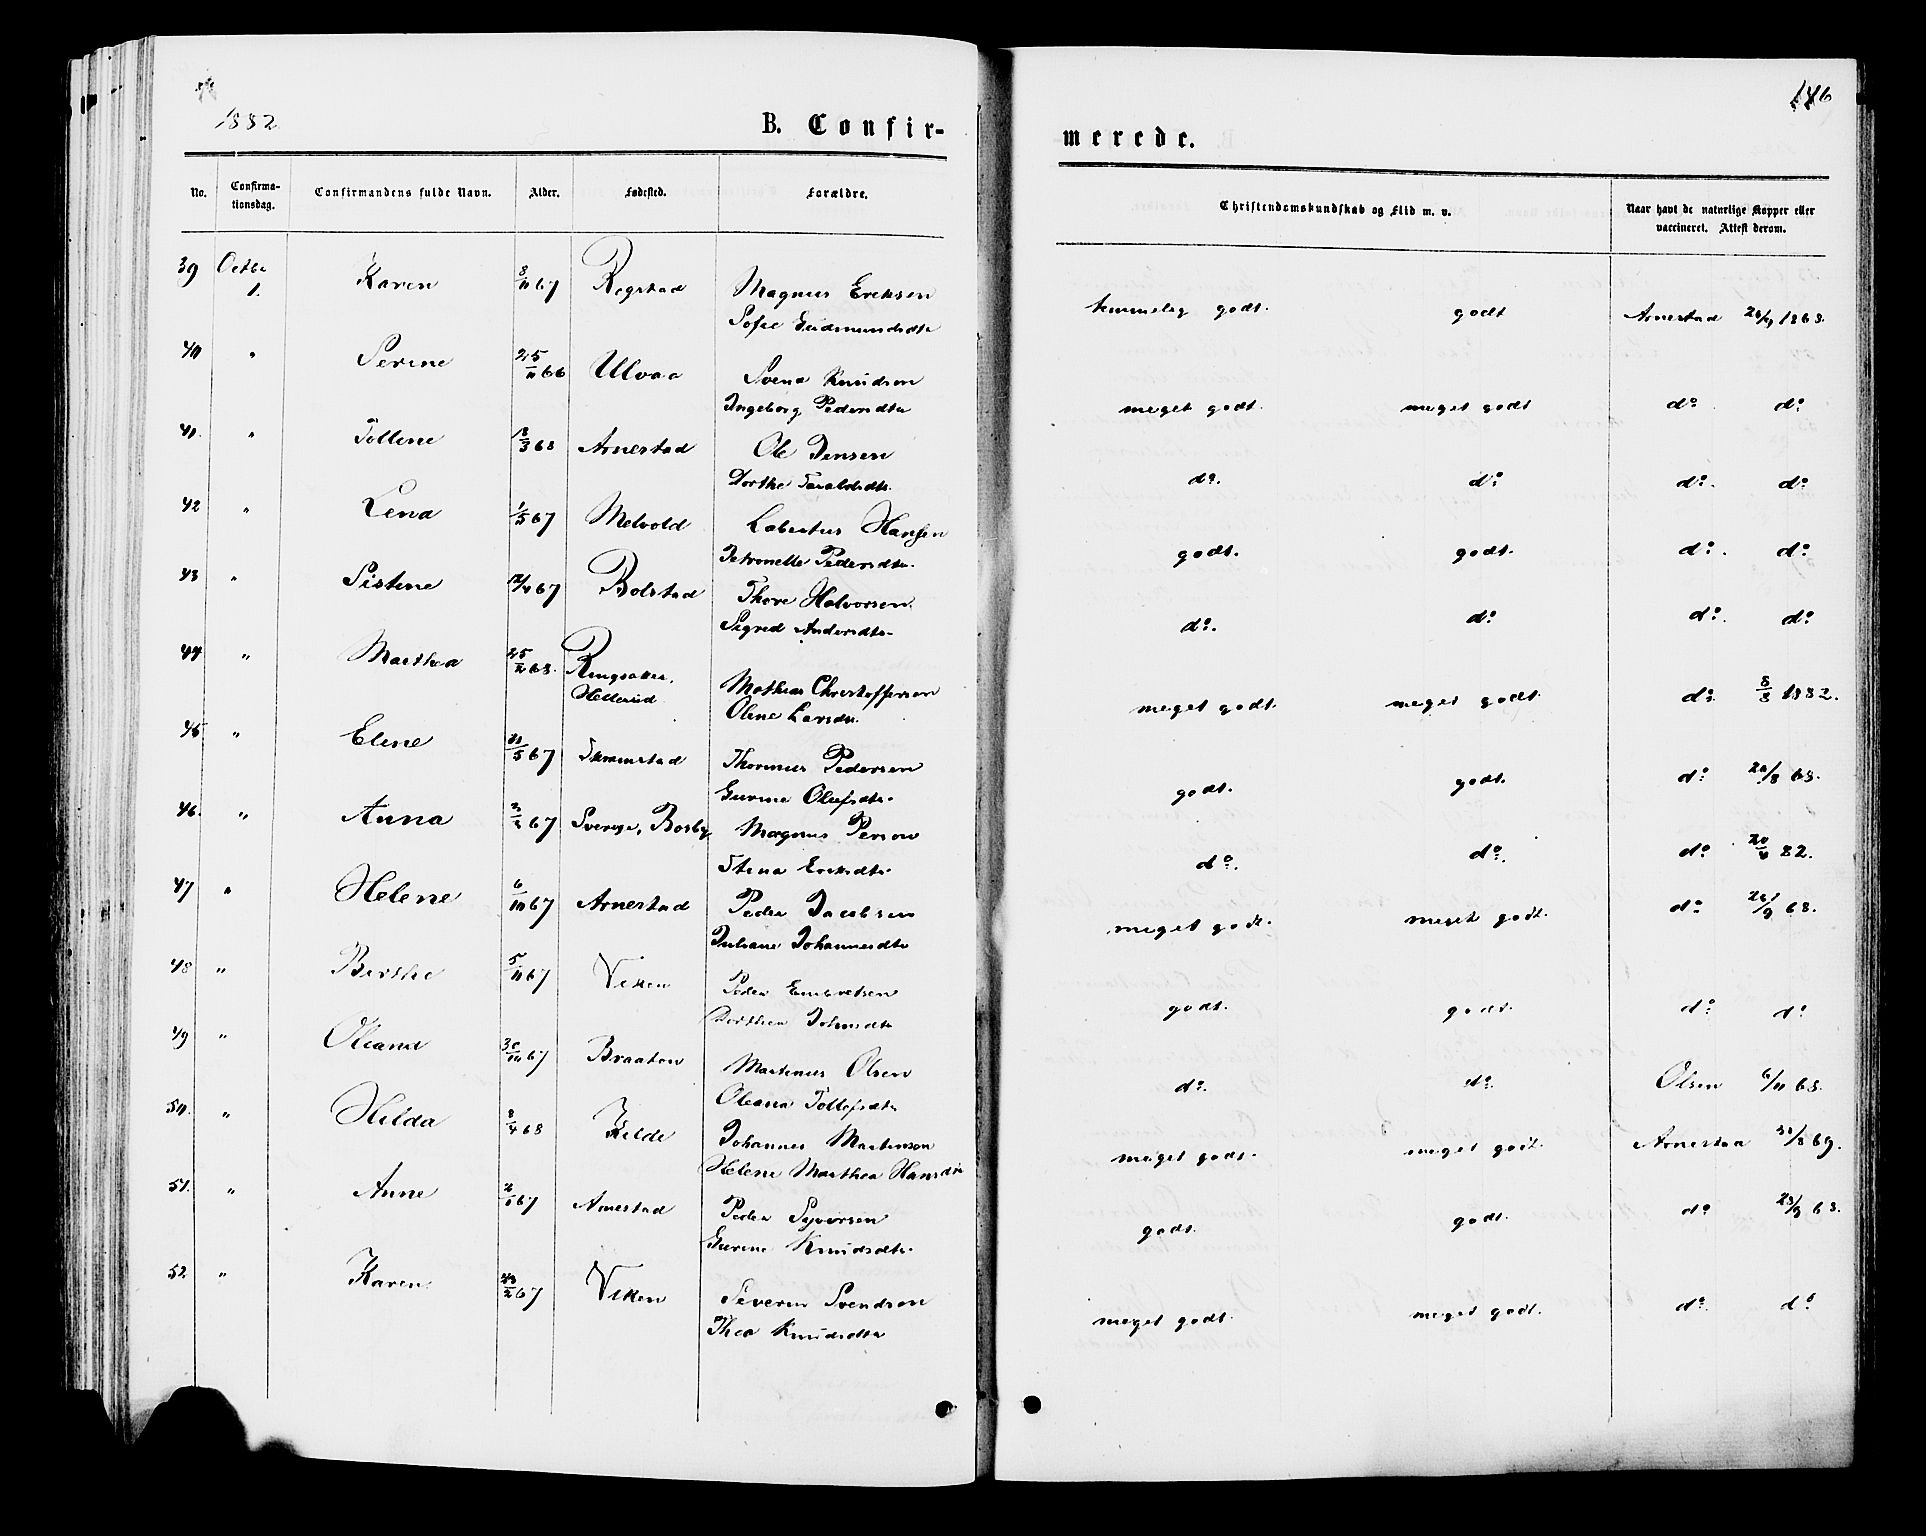 1882
B. Confir-
merede.
No. Confirma-tionsdag. Confirmandens fulde Navn. Alder. Fødested. Forældre. Christendomskundskab og Flid m. v. Naar havt de naturlige Kopper eller vaccineret. Attest derom.
39 Octbr 1. Karen 8/11 67 Rogstad Magnus Eriksen temmelig godt. godt Arnestad 1868.
Sofie Gudmundsdtr
40 " Serine 25/11 66 Ulvaa Svend Knudsen
Ingeborg Pedersdtr meget godt. meget godt do. do
41. " Tolline 3 68 Arnestad Ole Jensen
Dorthe do. do do. do
42 " Lena 67 Melvold Labertus Hansen
Petronelle Pedersdtr. godt. godt. do. do
43 " Sistine 67 Bolstad Thore Halvorsen
Sigrid Andersdtr. do. do do. do
44 " Marthea 25/2 68. Ringsaker, Hellerud Mathias Christoffersen
Oline Larsdtr. meget godt. meget godt do. 8/3 1882.
45 " Eline 5 67 Skramstad Thormus Pedersen
Gurine Olufsdtr. godt. godt. do 8 68.
46. " Anna 67 Sverige, Bosby Magnus Person
Stina Eriksdtr. do. do. do 82.
47 " Helene 6/10 67 Arnestad Peder Jacobsen
Juliane Johannesdtr meget godt. meget godt. do 9 68.
48 " Berthe 5/11 67 Viken Peder Embretsen
Dorthea Johnsdtr godt. godt. do do
49 " Oliana 30/10 67 Braaten Martinus Olsen
Oleana Tollefsdtr do. do. Olsen 6/11 68.
50. " Hilda 8/4 68 Kilde Johannes Martinson
Helene Marthea Hansdtr meget godt. meget godt. Arnestad 8 69.
51. " Anne 67 Arnestad Peder Syversen
Gurine Knudsdtr. godt. godt. do 68.
52 " Karen 67 Viken Severin Svendsen
Thea Knudsdtr meget godt. meget godt. do. do